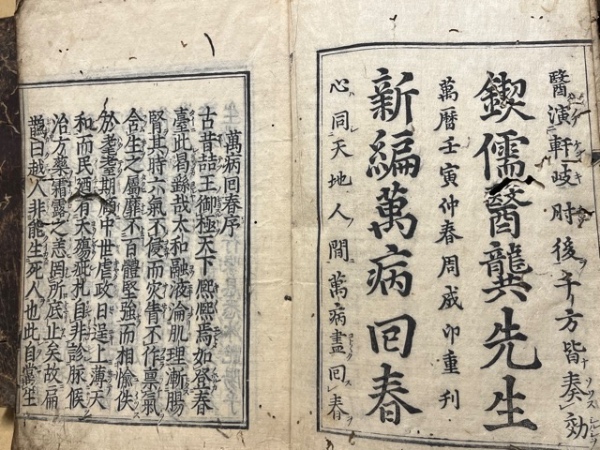 醫演軒岐肘後千方皆奏効
鍥儒醫龔先生
萬曆壬寅仲春周威卯重刊
新編萬病回春
心同天地人間萬病盡回春
萬病回春序
古昔喆王御極天下熈熈焉如登春
臺此曷繇哉太和融液淪肌理漸腸
腎其時六氣不侵而災眚不作禀氣
含生之屬靡不百體堅強而相愉佚
於耄耋期頤中世虐政日逞上薄天
和而民廼有夭殤疵札自非診脉候
治方藥霜露之恙罔所底止矣故扁
鵲曰越人非能生死人也此自當生